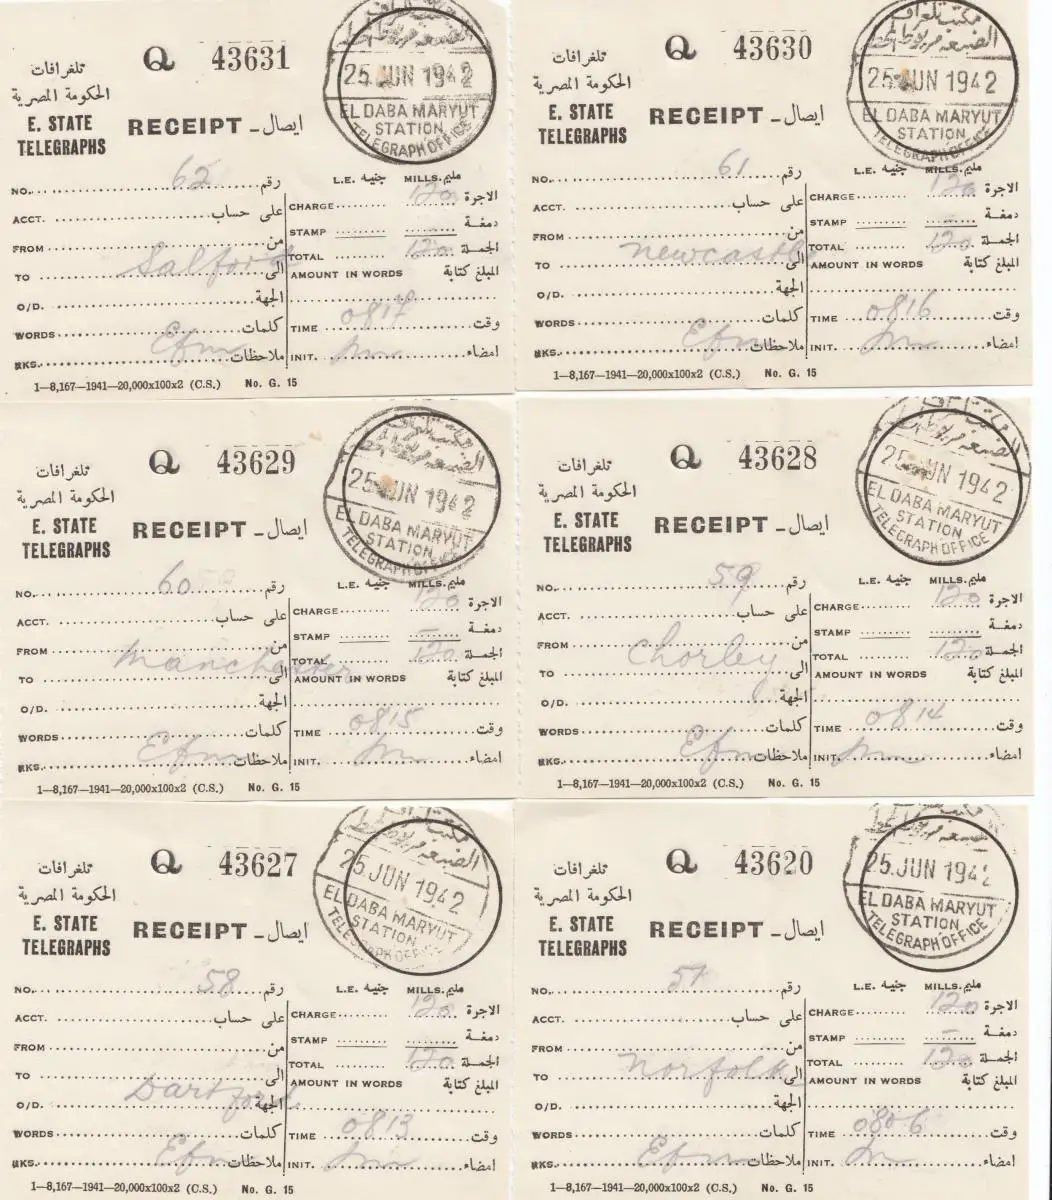 Q 43631
تلغرافات
الحكومة المصرية
E. STATE
TELEGRAPHS
RECEIPT - ايصال
25 JUN 1942
EL DABA MARYUT
STATION
TELEGRAPH OFFICE
NO. 62 رقم
L.E. جنيه MILLS. مليم
ACCT. على حساب
CHARGE 120 الاجرة
FROM من
STAMP دمغة
TO Salford الى
TOTAL 120 الجملة
AMOUNT IN WORDS المبلغ كتابة
O/D. الجهة
WORDS كلمات
TIME 0817 وقت
RKS. Efm ملاحظات
INIT. امضاء
1—8,167—1941—20,000x100x2 (C.S.) No. G. 15
Q 43630
مكتب تلغراف
الضبعه مريوط المحطه
تلغرافات
الحكومة المصرية
E. STATE
TELEGRAPHS
RECEIPT - ايصال
25 JUN 1942
EL DABA MARYUT
STATION
TELEGRAPH OFFICE
NO. 61 رقم
L.E. جنيه MILLS. مليم
ACCT. على حساب
CHARGE 120 الاجرة
FROM من
STAMP — دمغة
TO Newcastle الى
TOTAL 120 الجملة
AMOUNT IN WORDS المبلغ كتابة
O/D. الجهة
WORDS كلمات
TIME 0816 وقت
RKS. Efm ملاحظات
INIT. امضاء
1—8,167—1941—20,000x100x2 (C.S.) No. G. 15
Q 43629
تلغرافات
الحكومة المصرية
E. STATE
TELEGRAPHS
RECEIPT - ايصال
25 JUN 1942
EL DABA MARYUT
STATION
TELEGRAPH OFFICE
NO. 60 رقم
L.E. جنيه MILLS. مليم
ACCT. على حساب
CHARGE 120 الاجرة
FROM من
STAMP — دمغة
TO Manchester الى
TOTAL 120 الجملة
AMOUNT IN WORDS المبلغ كتابة
O/D. الجهة
WORDS كلمات
TIME 0815 وقت
RKS. Efm ملاحظات
INIT. امضاء
1—8,167—1941—20,000x100x2 (C.S.) No. G. 15
Q 43628
تلغرافات
الحكومة المصرية
E. STATE
TELEGRAPHS
RECEIPT - ايصال
25 JUN 1942
EL DABA MARYUT
STATION
TELEGRAPH OFFICE
NO. 59 رقم
L.E. جنيه MILLS. مليم
ACCT. على حساب
CHARGE 120 الاجرة
FROM من
STAMP دمغة
TO Chorley الى
TOTAL 120 الجملة
AMOUNT IN WORDS المبلغ كتابة
O/D. الجهة
WORDS كلمات
TIME 0814 وقت
RKS. Efm ملاحظات
INIT. امضاء
1—8,167—1941—20,000x100x2 (C.S.) No. G. 15
Q 43627
تلغرافات
الحكومة المصرية
E. STATE
TELEGRAPHS
RECEIPT - ايصال
25 JUN 1942
EL DABA MARYUT
STATION
TELEGRAPH OFFICE
NO. 58 رقم
L.E. جنيه MILLS. مليم
ACCT. على حساب
CHARGE 120 الاجرة
FROM من
STAMP دمغة
TO Dartford الى
TOTAL 120 الجملة
AMOUNT IN WORDS المبلغ كتابة
O/D. الجهة
WORDS كلمات
TIME 0813 وقت
RKS. Efm ملاحظات
INIT. امضاء
1—8,167—1941—20,000x100x2 (C.S.) No. G. 15
Q 43620
تلغرافات
الحكومة المصرية
E. STATE
TELEGRAPHS
RECEIPT - ايصال
25 JUN 1942
EL DABA MARYUT
STATION
TELEGRAPH OFFICE
NO. 51 رقم
L.E. جنيه MILLS. مليم
ACCT. على حساب
CHARGE 120 الاجرة
FROM من
STAMP — دمغة
TO Norfolk الى
TOTAL 120 الجملة
AMOUNT IN WORDS المبلغ كتابة
O/D. الجهة
WORDS كلمات
TIME 0806 وقت
RKS. Efm ملاحظات
INIT. امضاء
1—8,167—1941—20,000x100x2 (C.S.) No. G. 15